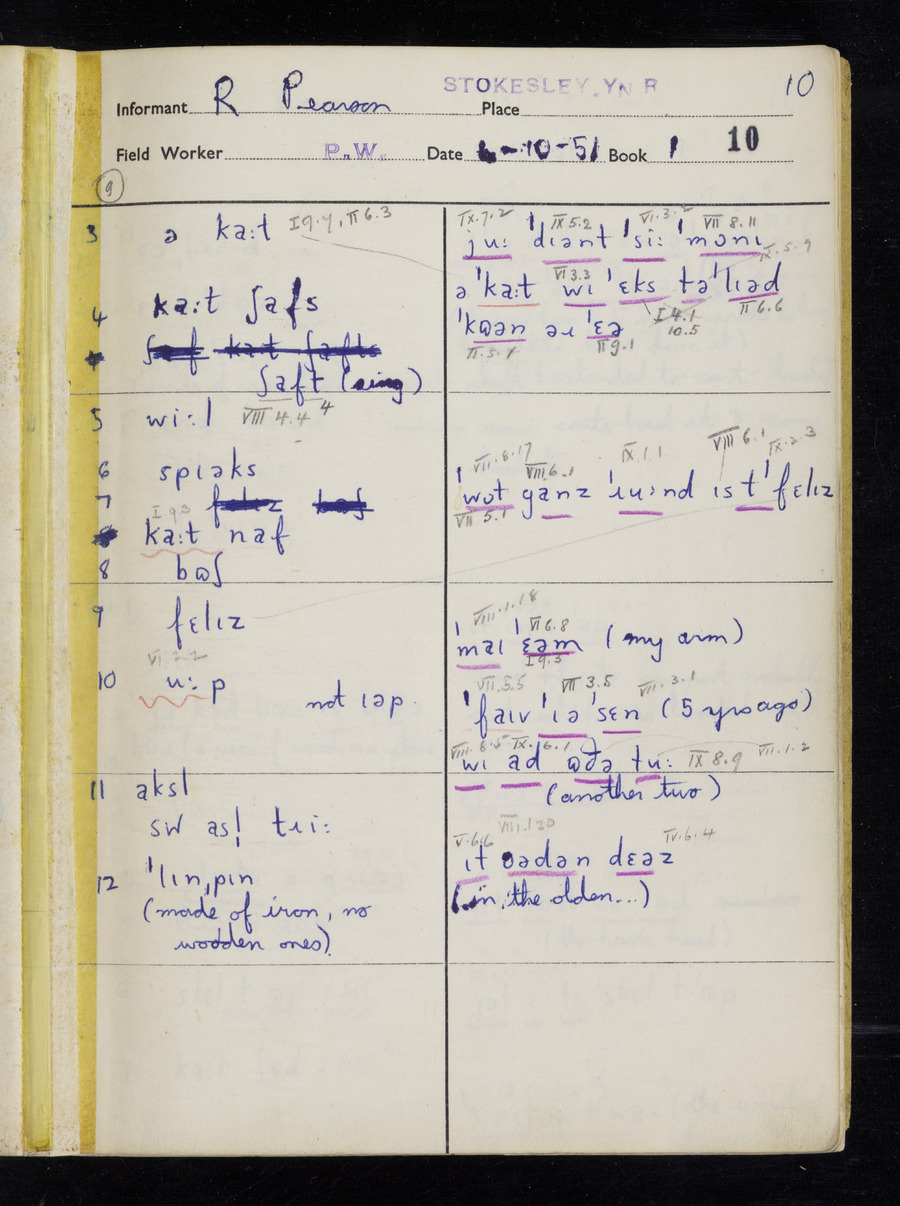 STOKESLEY, Yn R
10
Informant R Pearson Place
Field Worker P.W. Date 6-10-51 Book 1 10
9
3 ə ka:t I 9.4, II 6.3
4 ka:t ʃafs
ʃaft (sing)
5 wi:l VIII 4.4 4
6 spɪəks
7
I 9 3
ka:t naf
8 bɷʃ
9 fɛlɪz
VI 2.2
10 u:p
not ɪəp.
11 aksl
sw as! tɹi:
12 ˈlɪnˌpɪn
(made of iron, no
wodden ones)
IX.7.2 IX 5.2 VI.3.2 VII 8.11
ju: ˈdɪənt ˈsi: ˈmɔnɪ
IX.5.9
VI 3.3
ə ˈka:t wɪ ˈɛks tə ˈlɪəd
I 4.1 II 6.6
10.5
ˈkɷən əɹ ˈɛə
II.5.1 II 9.1
VII.8.17 VIII.6.1 IX.1.1 VIII 6.1 IX.2.3
ˈwɷt ganz ˈɹu:nd ɪs tˈfɛlɪz
VII.5.1
VIII.1.18 VI 6.8
ˈmaɪ ˈɛəm (my arm)
I 9.3
VII.5.5 VII 3.5 VII.3.1
ˈfaɪv ˈɪə ˈsɛn (5 yrs ago)
VIII.8.5 IX.6.1
wɪ ad ɷðə tu: IX 8.9 VII.1.2
(another two)
V.6.6 VIII.1.20 IV.6.4
ɪt oədən dɛəz
(in, the olden...)